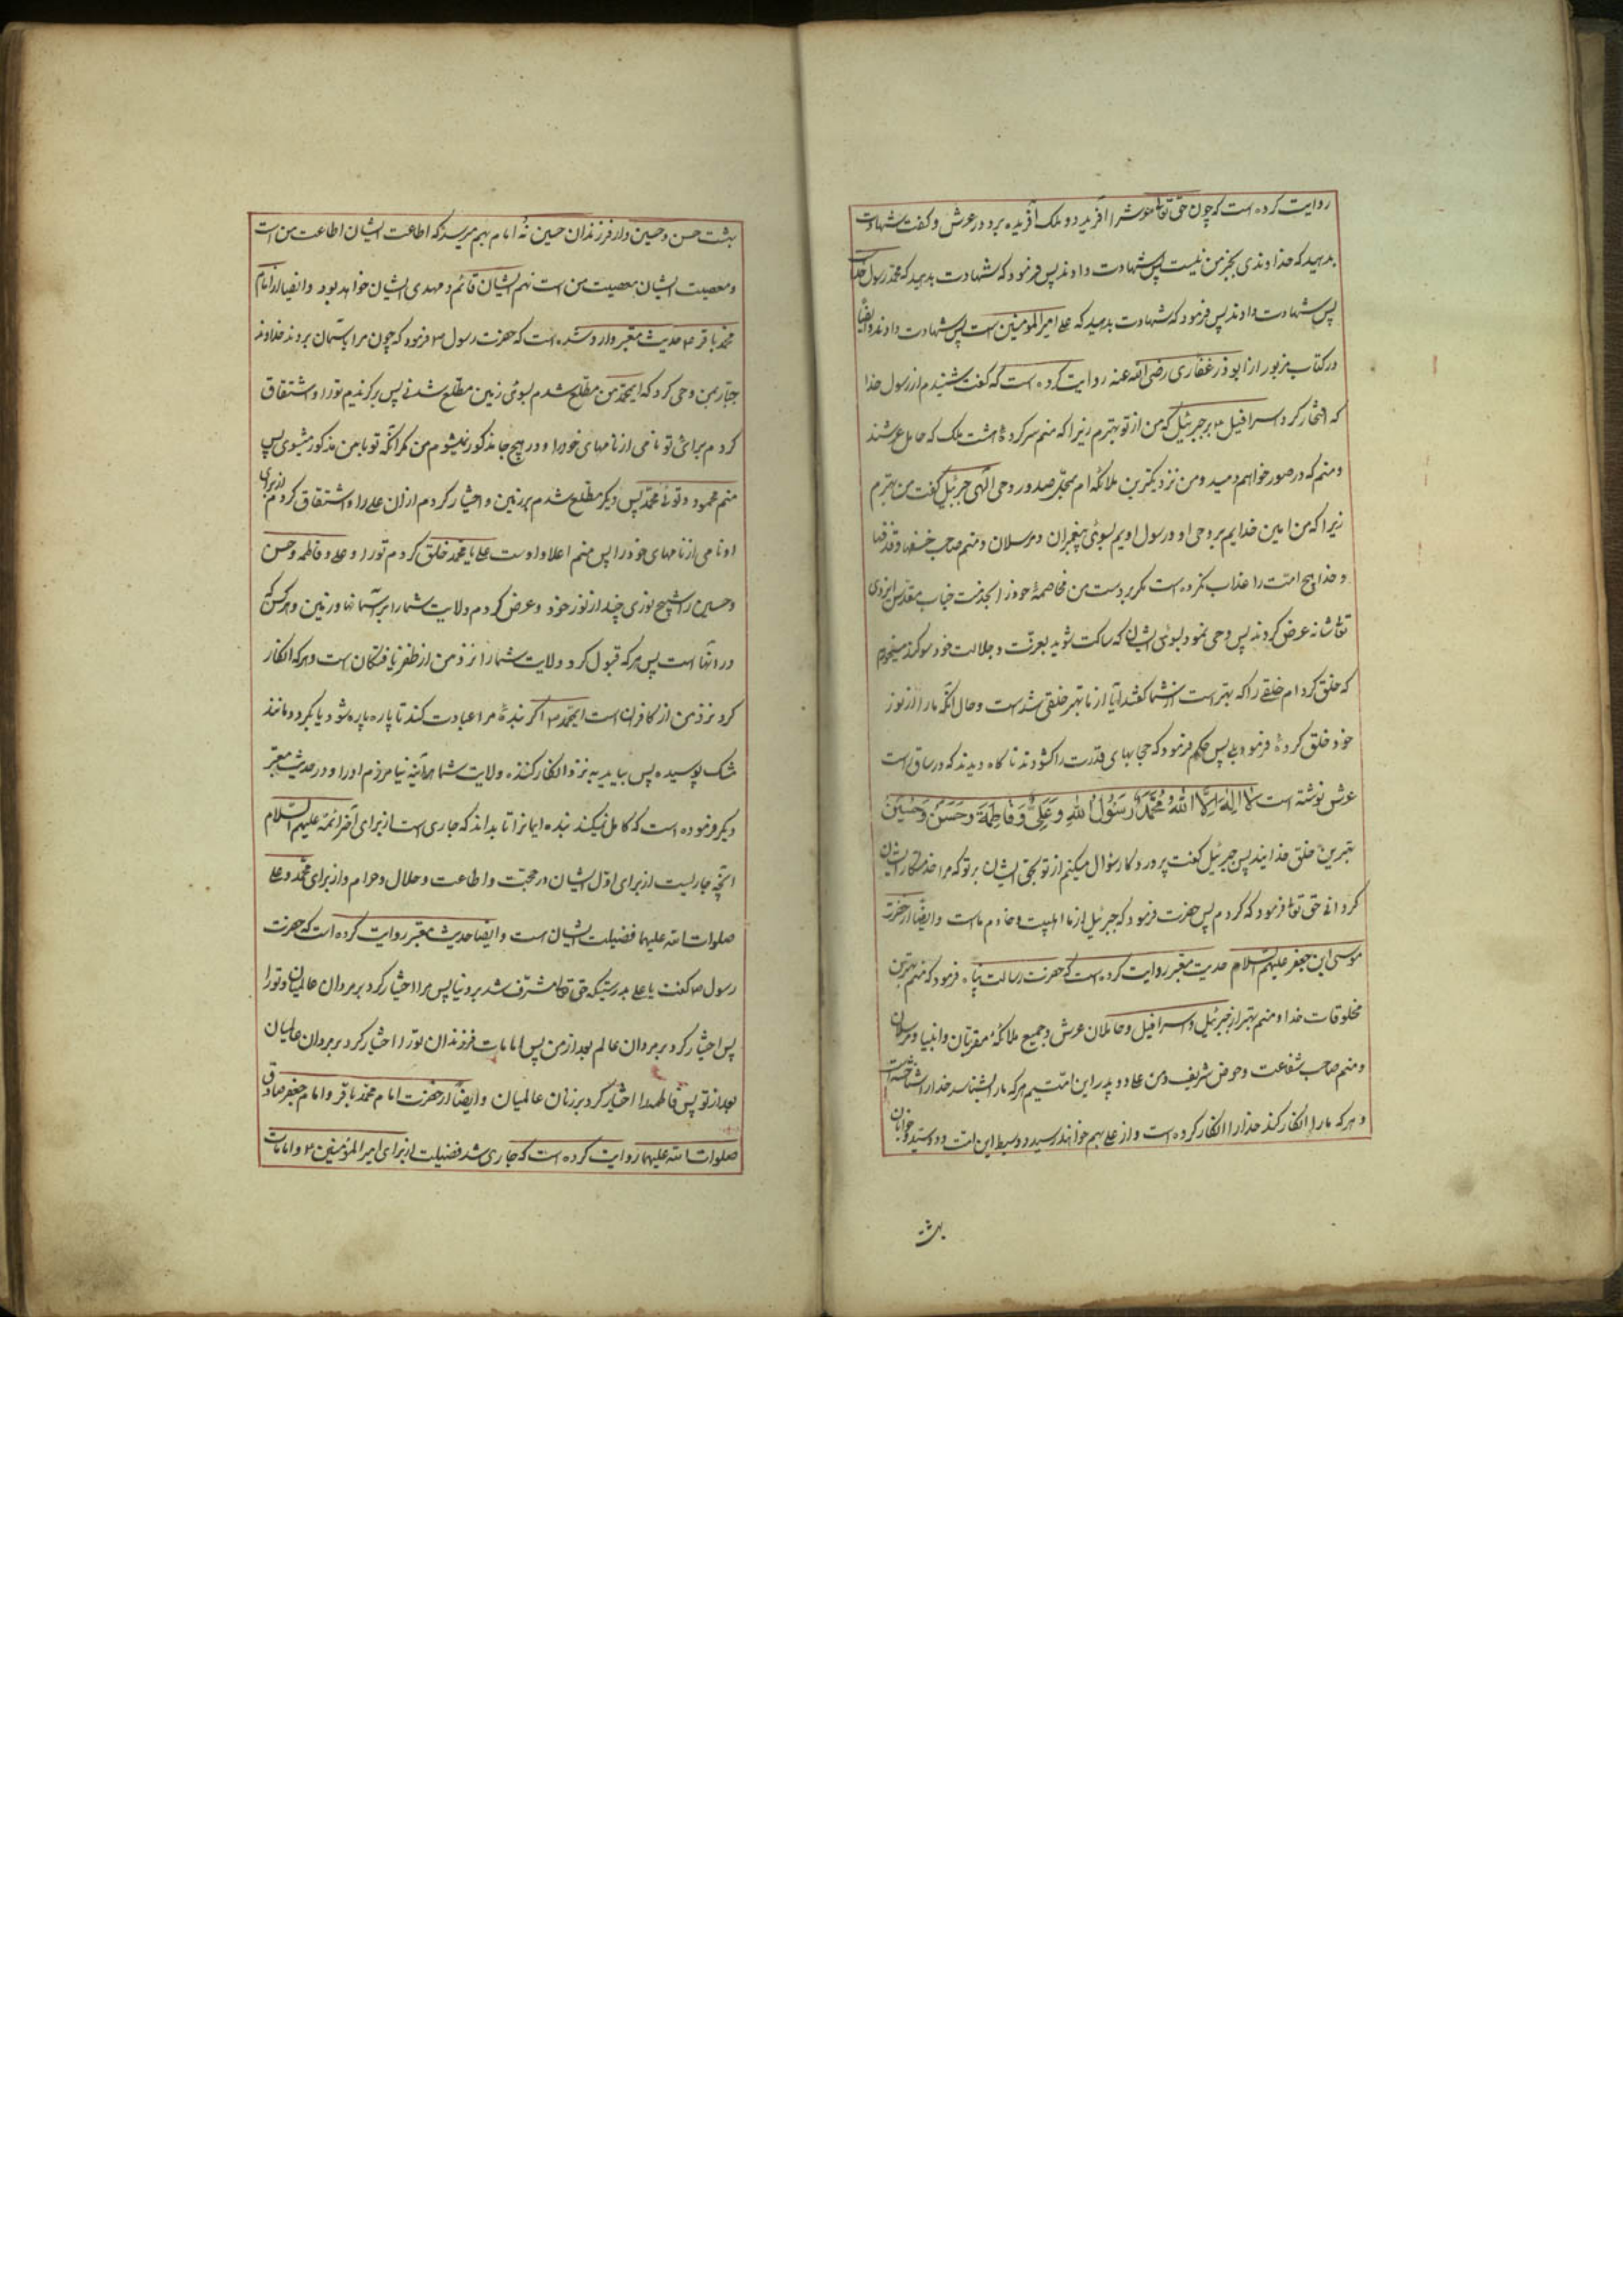 روایت کرده است که چون حق تعا عرش را آفرید دو ملک آفریده برد در عرش و گفت شهادت
بدهید که خداوندی بجز من نیست پس شهادت دادند پس فرمود که شهادت بدهید که محمد رسول خداست
پس شهادت دادند پس فرمود که شهادت بدهید که علی امیر المومنین است پس شهادت دادند و ایضاً
در کتاب مزبور از ابوذر غفاری رضی الله عنه روایت کرده است که گفت شنیدم از رسول خدا
که افتخار کرد اسرافیل بر جبرئیل که من از تو بهترم زیرا که منم سرکردهٔ هشت ملک که حامل عرشند
و منم که در صور خواهم دمید و من نزدیکترین ملائکه ام بمحل صدور وحی الهی جبرئیل گفت من بهترم
زیرا که من امین خدایم بر وحی او و رسول اویم بسوی پیغمبران و مرسلان و منم صاحب خسفها و قذفها
و خدا هیچ امت را عذاب نکرده است مگر بر دست من مخاصمهٔ خود را بخدمت جناب مقدس ایزدی
تعا شانه عرض کردند پس وحی نمود بسوی ایشان که ساکت شوید بعزت و جلالت خود سوگند میخورم
که خلق کرده ام خلقی را که بهتر است از شما گفتند آیا از ما بهتر خلقی شده است و حال آنکه ما را از نور
خود خلق کردهٔ فرمود بلی پس حکم فرمود که حجابهای قدرت را گشودند ناگاه دیدند که در ساق است
عرش نوشته است لا اله الا الله محمد رسول الله و علی و فاطمة و حسن و حسین
بهترین خلق خدایند پس جبرئیل گفت پروردگارا سؤال میکنم از تو بحق ایشان بر تو که مرا خدمتکار ایشان
گردانی حق تعا فرمود که کردم پس حضرت فرمود که جبرئیل از ما اهلبیت و خادم ماست و ایضاً از حضرت
موسی ابن جعفر علیهم السلام حدیث معتبر روایت کرده است که حضرت رسالت پناه فرمود که منم بهترین
مخلوقات خدا و منم بهتر از جبرئیل و اسرافیل و حاملان عرش و جمیع ملائکهٔ مقربان و انبیا و مرسلان
و منم صاحب شفاعت و حوض شریف و من و علی دو پدر این امتیم هر که ما را بشناسد خدا را شناخته است
و هر که ما را انکار کند خدا را انکار کرده است و از علی بهم خواهند رسید دو سبط این امت و دو سید جوانان
بهشت
بهشت حسن و حسین و از فرزندان حسین نه امام بهم میرسند که اطاعت ایشان اطاعت من است
و معصیت ایشان معصیت من است نهم ایشان قائم و مهدی ایشان خواهد بود و ایضا از امام
محمد باقر حدیث معتبر وارد شده است که حضرت رسول ص فرمود که چون مرا بآسمان بردند خداوند
جبار بمن وحی کرد که ایمحمد من مطلع شدم بسوی زمین مطلع شدنی پس برگزیدم تو را و اشتقاق
کردم برای تو نامی از نامهای خود را و در هیچ جا مذکور نمیشوم من مگر آنکه تو با من مذکور میشوی پس
منم محمود و توئی محمد پس دیگر مطلع شدم بر زمین و اختیار کردم از ان علی را و اشتقاق کردم از برای
او نامی از نامهای خود را پس منم اعلا و اوست علی یا محمد خلق کردم تو را و علی و فاطمه و حسن
و حسین را شبح نوری چند از نور خود و عرض کردم ولایت شما را بر آسمانها و زمین و هر کس که
در آنها است پس هر که قبول کرد ولایت شما را نزد من از ظفر یافتگان است و هر که انکار
کرد نزد من از کافران است ایمحمد اگر بندهٔ مرا عبادت کند تا پاره پاره شود یا بگردد مانند
مشک پوسیده پس بیاید به نزد انکار کننده ولایت شما هرآینه نیامرزم او را و در حدیث معتبر
دیگر فرموده است که کامل نمیکند بنده ایمانرا تا بداند که جاری است از برای آخر ائمه علیهم السلام
آنچه جاریست از برای اول ایشان در محبت و اطاعت و حلال و حرام و از برای محمد و علی
صلوات الله علیهما فضیلت ایشان است و ایضا حدیث معتبر روایت کرده است که حضرت
رسول ص گفت یا علی بدرستیکه حق تعا مشرف شد بر دنیا پس مرا اختیار کرد بر مردان عالمیان و تو را
پس اختیار کرد بر مردان عالم بعد از من پس امامات فرزندان تو را اختیار کرد بر مردان عالمیان
بعد از تو پس فاطمه را اختیار کرد بر زنان عالمیان و ایضاً از حضرت امام محمد باقر و امام جعفر صادق
صلوات الله علیهما روایت کرده است که جاری شد فضیلت از برای امیر المؤمنین و امامان